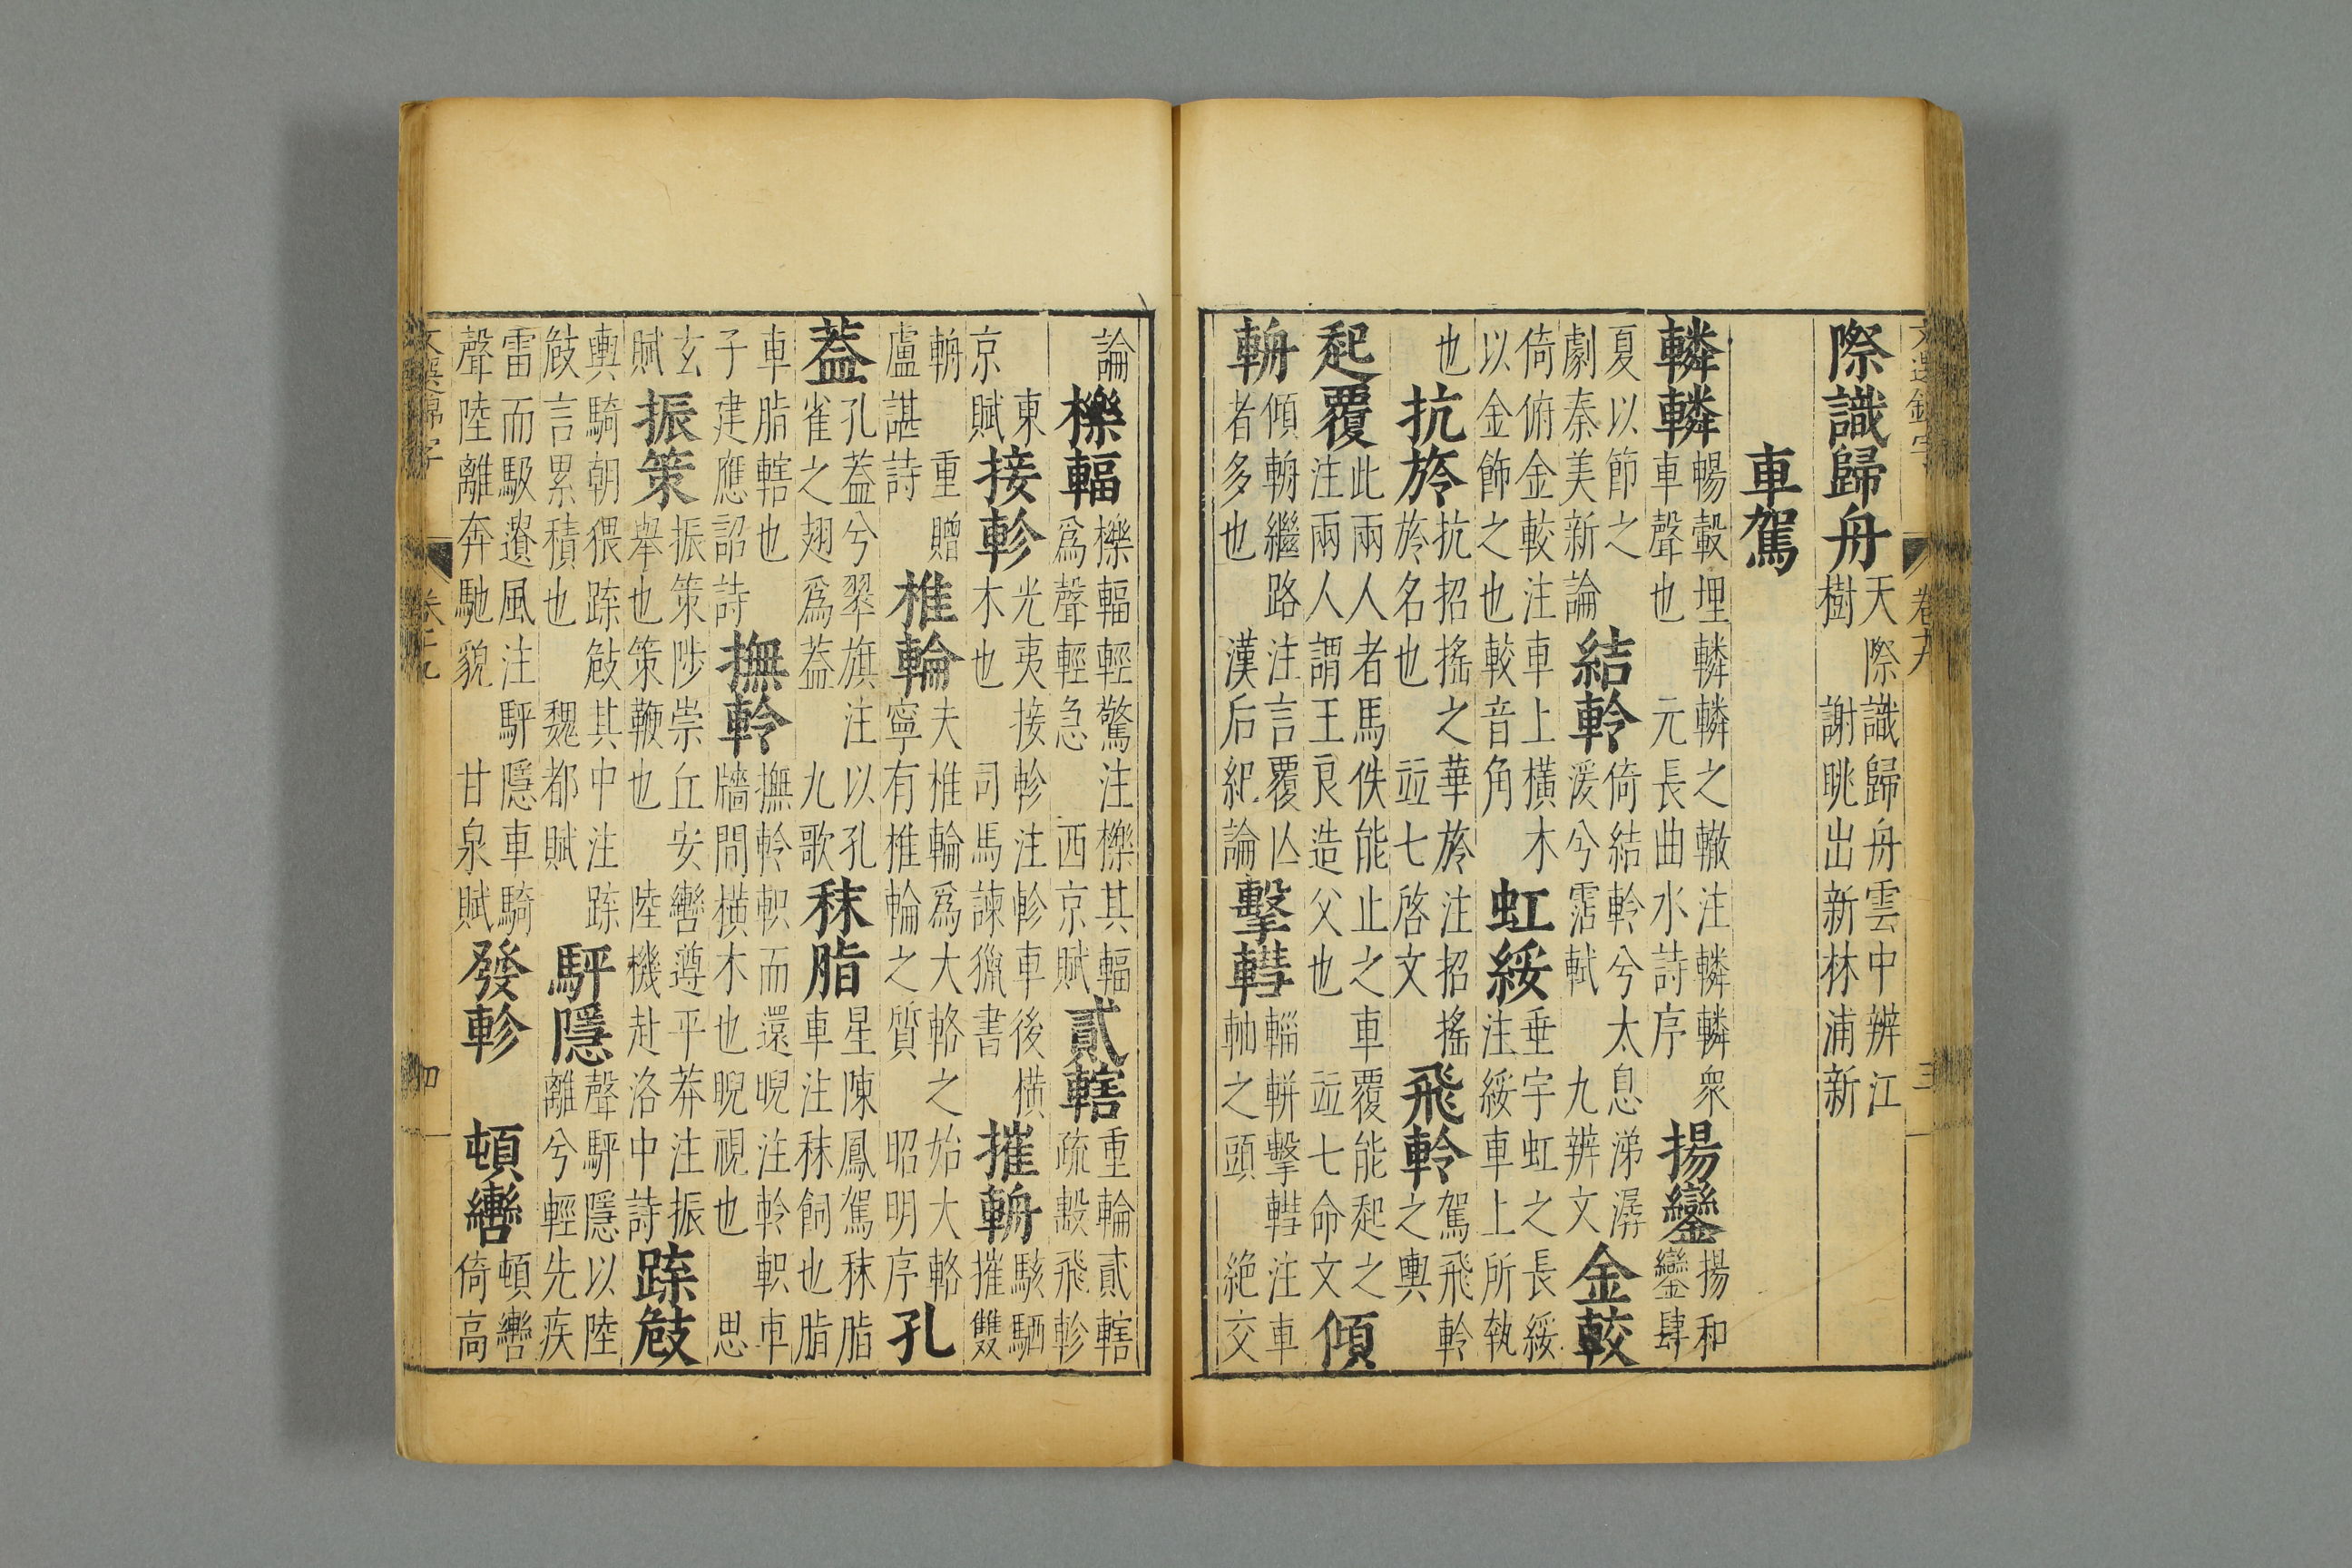 際識歸舟天際識歸舟雲中辨江
樹 謝眺出新林浦新
車駕
轔轔暢轂埋轔轔之轍注轔轔衆
車聲也 元長曲水詩序
揚鑾揚和
鑾肆
夏以節之
劇秦美新論
結軨倚結軨兮太息涕潺
湲兮霑軾 九辨文
金較
倚俯金較注車上橫木
以金飾之也較音角
虹綏垂宇虹之長綏
注綏車上所執
也
抗旍抗招搖之華旍注招搖
旍名也 竝七啓文
飛軨駕飛軨
之輿
起覆此兩人者馬佚能止之車覆能起之
注兩人謂王良造父也 竝七命文
傾
輈傾輈繼路注言覆亾
者多也 漢后紀論
擊轊輜軿擊轊注車
軸之頭 絶交
論
櫟輻櫟輻輕驚注櫟其輻
爲聲輕急 西京賦
貳轄重輪貳轄
疏轂飛軫
東
京賦
接軫光夷接軫注軫車後橫
木也 司馬諫獵書
摧輈駭駟
摧雙
輈 重贈
盧諶詩
椎輪夫椎輪爲大輅之始大輅
寧有椎輪之質 昭明序
孔
葢孔葢兮翠旗注以孔
雀之翅爲葢 九歌
秣脂星陳鳳駕秣脂
車注秣飼也脂
車脂轄也
子建應詔詩
撫軨撫軨軹而還睨注軨軹車
牆間横木也睨視也 思
玄
賦
振策振策陟崇丘安轡遵平莽注振
舉也策鞭也 陸機赴洛中詩
䟽㩻
輿騎朝猥䟽㩻其中注䟽
㩻言累積也 魏都賦
駍隱聲駍隱以陸
離兮輕先疾
雷而馺遺風注駍隱車騎
聲陸離奔馳貌 甘泉賦
發軫 頓轡頓轡
倚高
卷十九
四
三